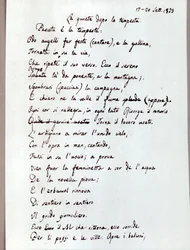 17-20 Sett. 1829
La quiete dopo la tempesta
Passata è la tempesta:
Odo augelli far festa, e la gallina,
Tornata in su la via,
Che ripete il suo verso. Ecco il sereno
Rompe là da ponente, a la montagna;
Sgombrasi la campagna,
E chiaro ne la valle il fiume
Ogni cor si rallegra, in ogni lato
Torna il lavoro usato.
L'artigiano a mirar l'umido cielo,
Con l'opra in man, cantando,
Fassi in su l'uscio; a prova
Vien fuor la femminetta a cor de l'acqua
De la novella piova;
E l'erbaiuol rinnova
Di sentiero in sentiero
Il grido giornaliero.
Ecco il Sol che ritorna, ecco sorride
Per li poggi e le ville. Apre i balconi,